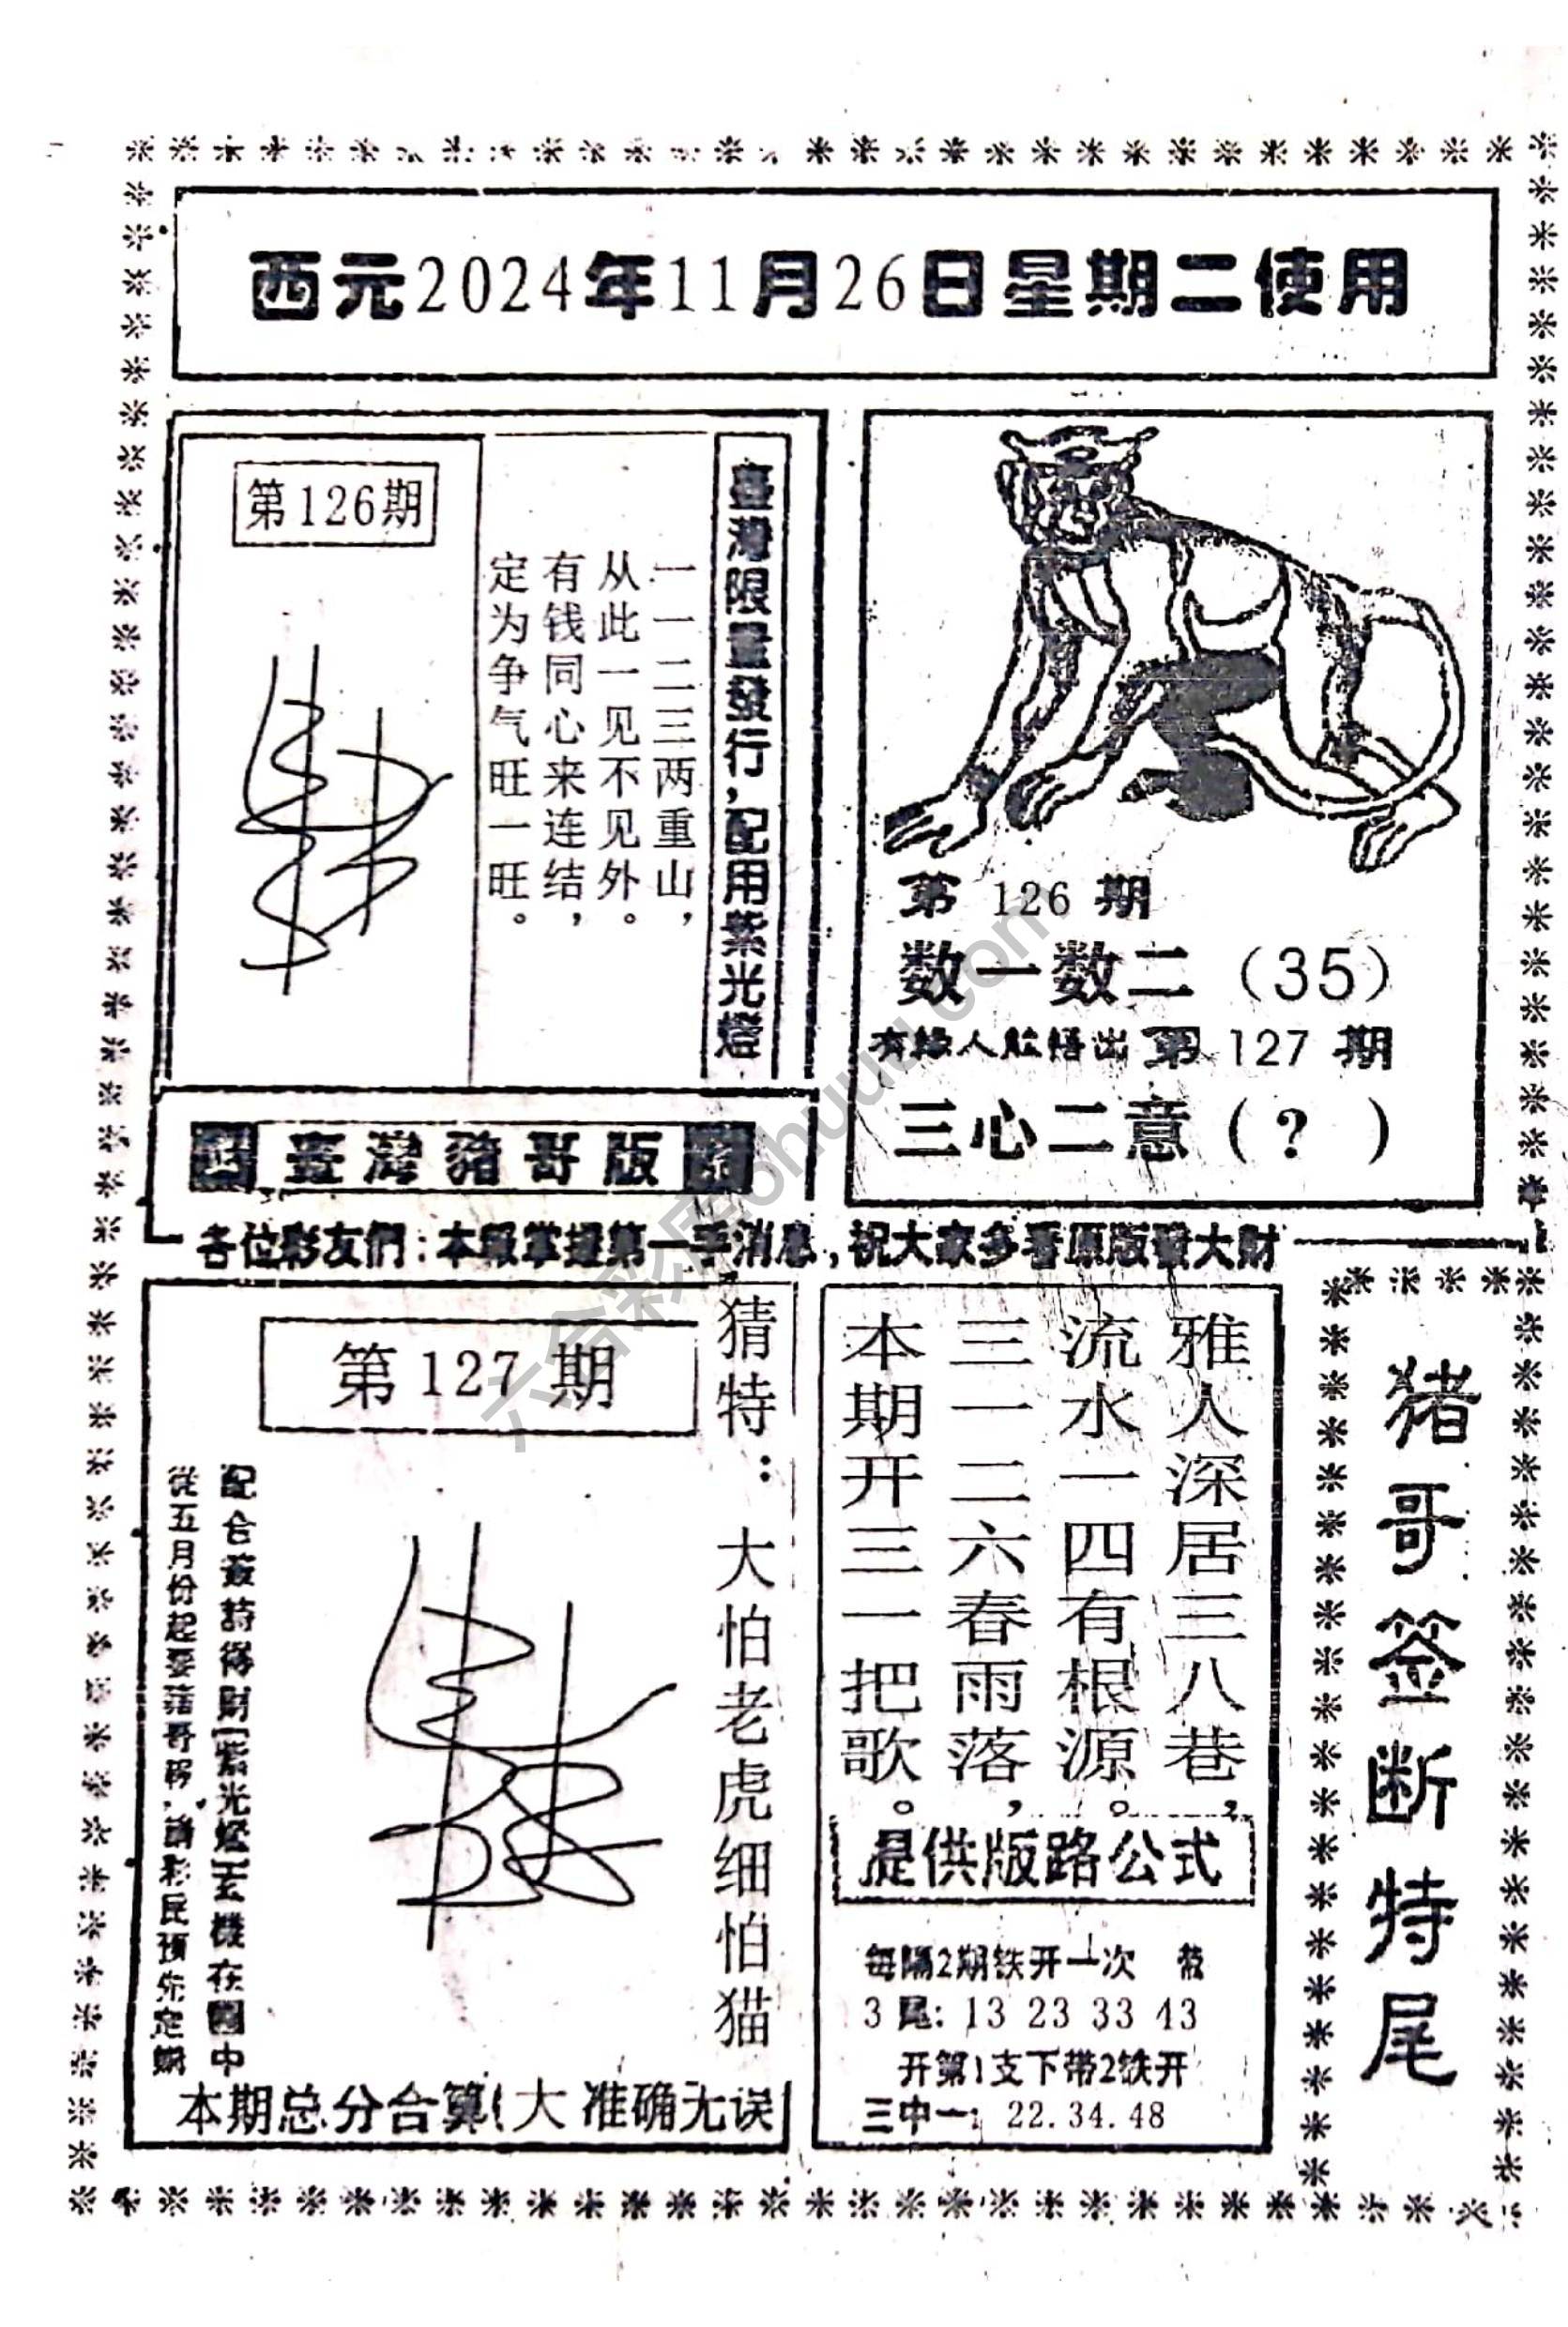 西元2024年11月26日星期二使用
臺灣限量發行,配用紫光燈
一一二三两重山,
从此一见不见外。
有钱同心来连结,
定为争气旺一旺。
第126期
第 126 期
数一数二（35）
有缘人能悟出 第 127 期
三心二意（? ）
臺灣豬哥版
各位彩友們:本報掌握第一手消息,祝大家多看原版發大財
第127期
猜特:大怕老虎细怕猫
配合簽詩得財[紫光燈]玄機在圖中
從五月份起要豬哥報,請彩民預先定購
本期总分合算(大 准确无误
雅人深居三八巷,
流水一四有根源。
三一二六春雨落,
本期开三一把歌。
提供版路公式
每隔2期铁开一次
3尾: 13 23 33 43
开第1支下带2铁开
三中一: 22.34.48
猪哥签断特尾
六合彩库ohuuu.com